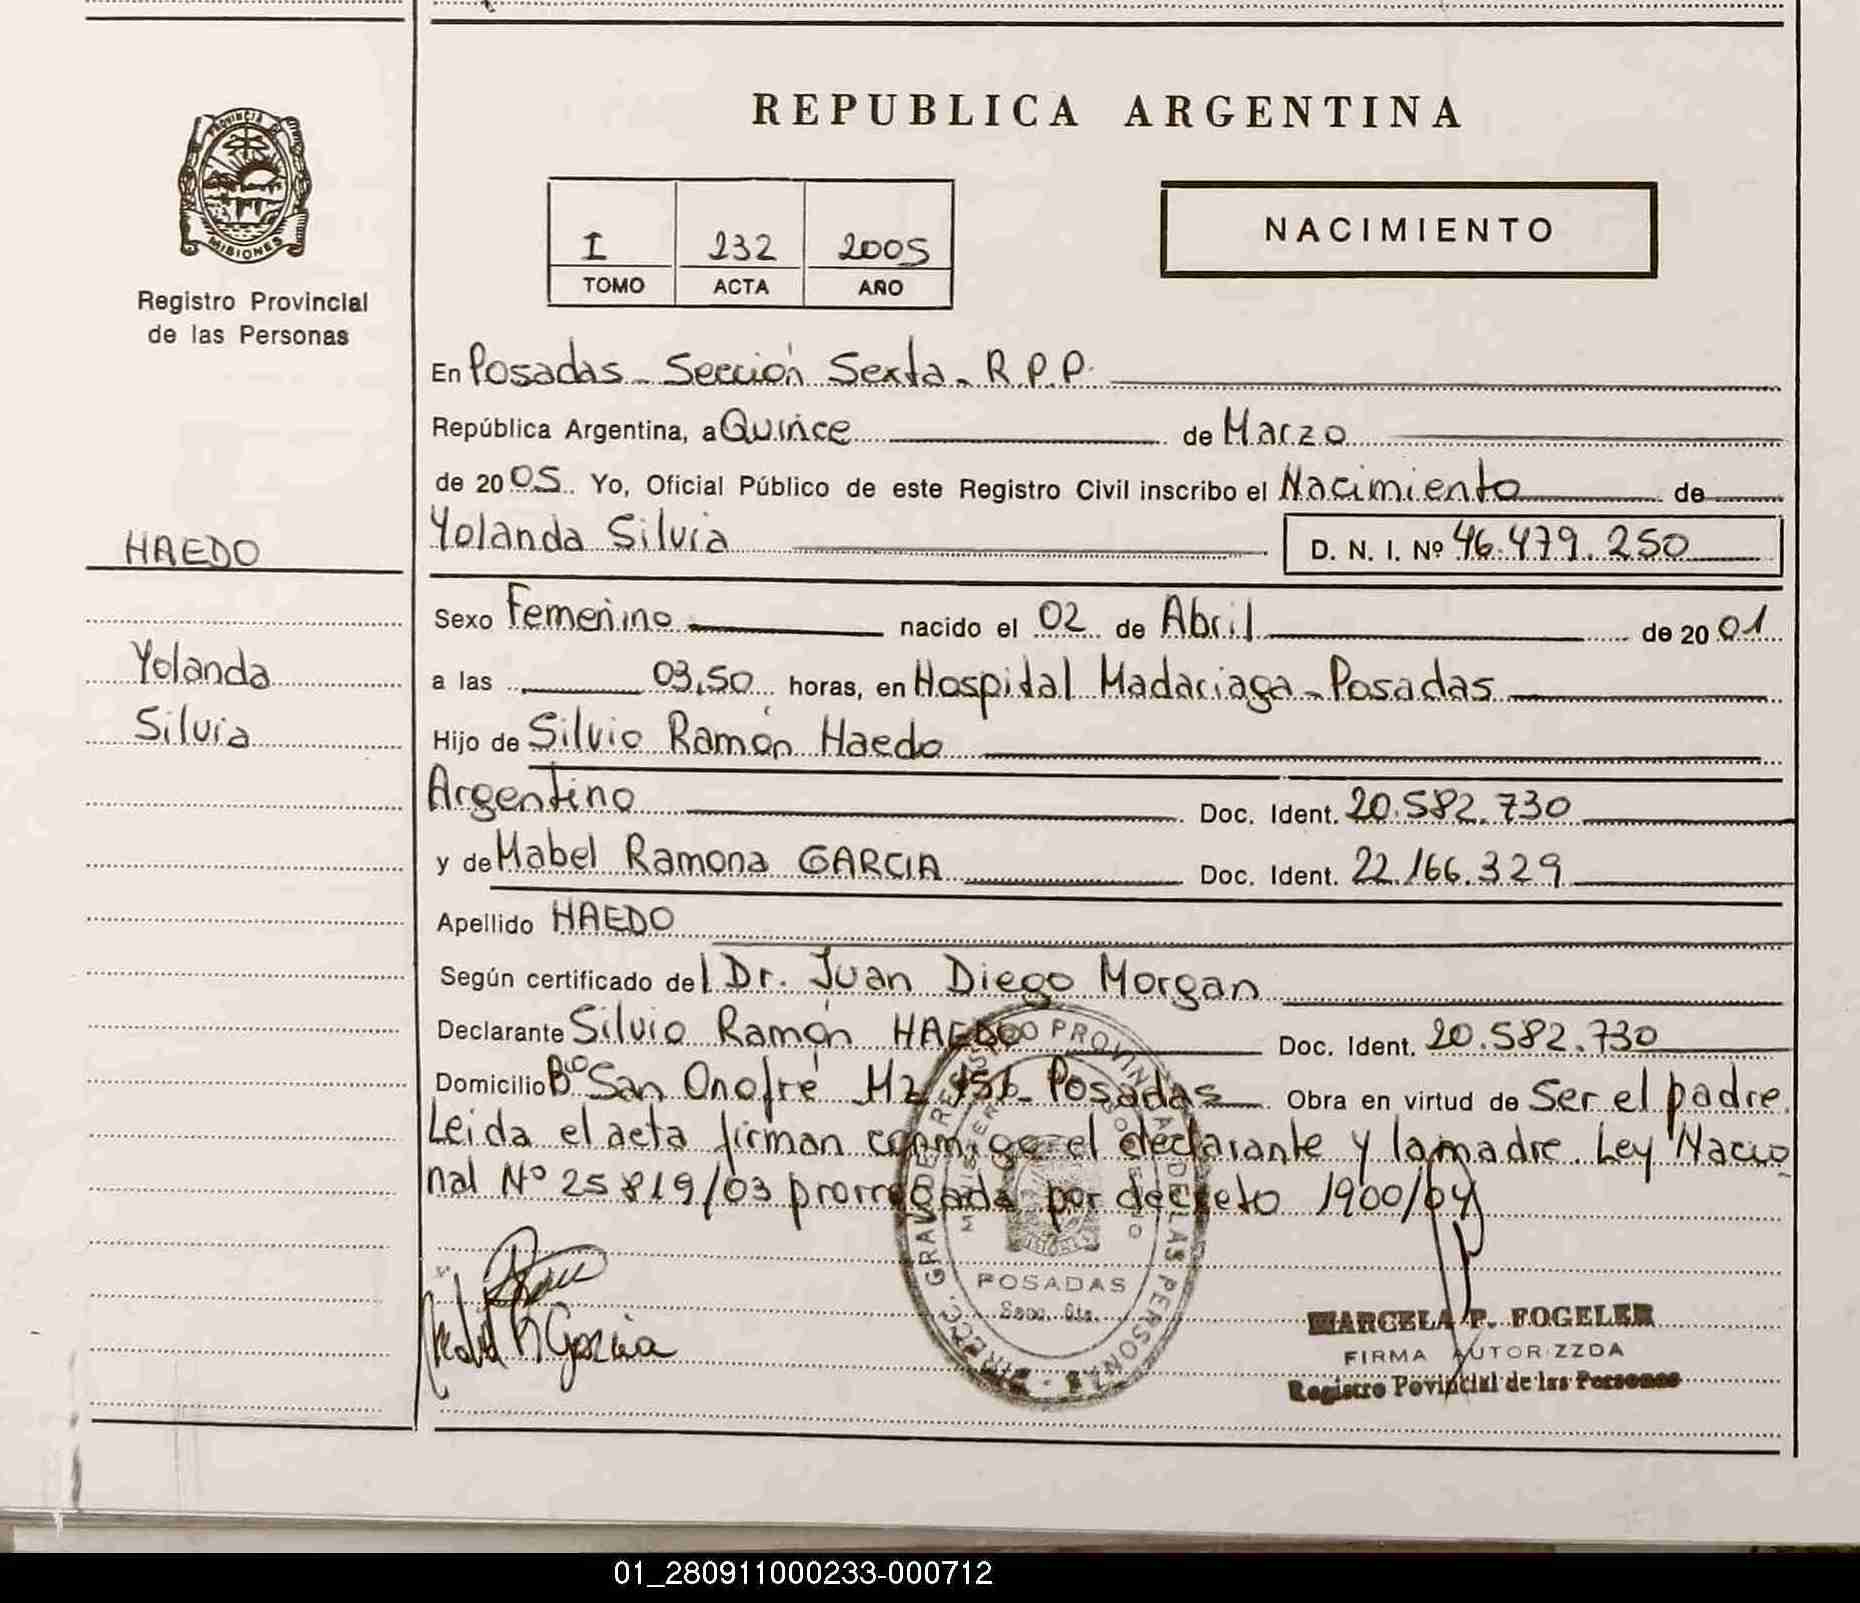 REPUBLICA ARGENTINA
PROVINCIA DE
MISIONES
Registro Provincial
de las Personas
I 232 2005
TOMO ACTA AÑO
NACIMIENTO
En Posadas - Sección Sexta - R.P.P.
República Argentina, a Quince de Marzo
de 2005. Yo, Oficial Público de este Registro Civil inscribo el Nacimiento de
HAEDO
Yolanda Silvia D. N. I. Nº 46.479.250
Sexo Femenino nacido el 02 de Abril de 2001
Yolanda
a las 03,50 horas, en Hospital Madariaga - Posadas
Silvia
Hijo de Silvio Ramón Haedo
Argentino Doc. Ident. 20.582.730
y de Mabel Ramona GARCIA Doc. Ident. 22.166.329
Apellido HAEDO
Según certificado del Dr. Juan Diego Morgan
Declarante Silvio Ramón HAEDO Doc. Ident. 20.582.730
Domicilio Bº San Onofre Mz Posadas Obra en virtud de Ser el padre.
Leida el acta firman conmigo el declarante y la madre. Ley Nacio
nal Nº 25819/03 prorrogada por decreto 1900/04
REGISTRO PROVINCIAL DE LAS PERSONAS
POSADAS
Secc. 6ta.
MARCELA P. FOGELER
FIRMA AUTORIZZDA
Registro Povincial de las Personas
01_280911000233-000712